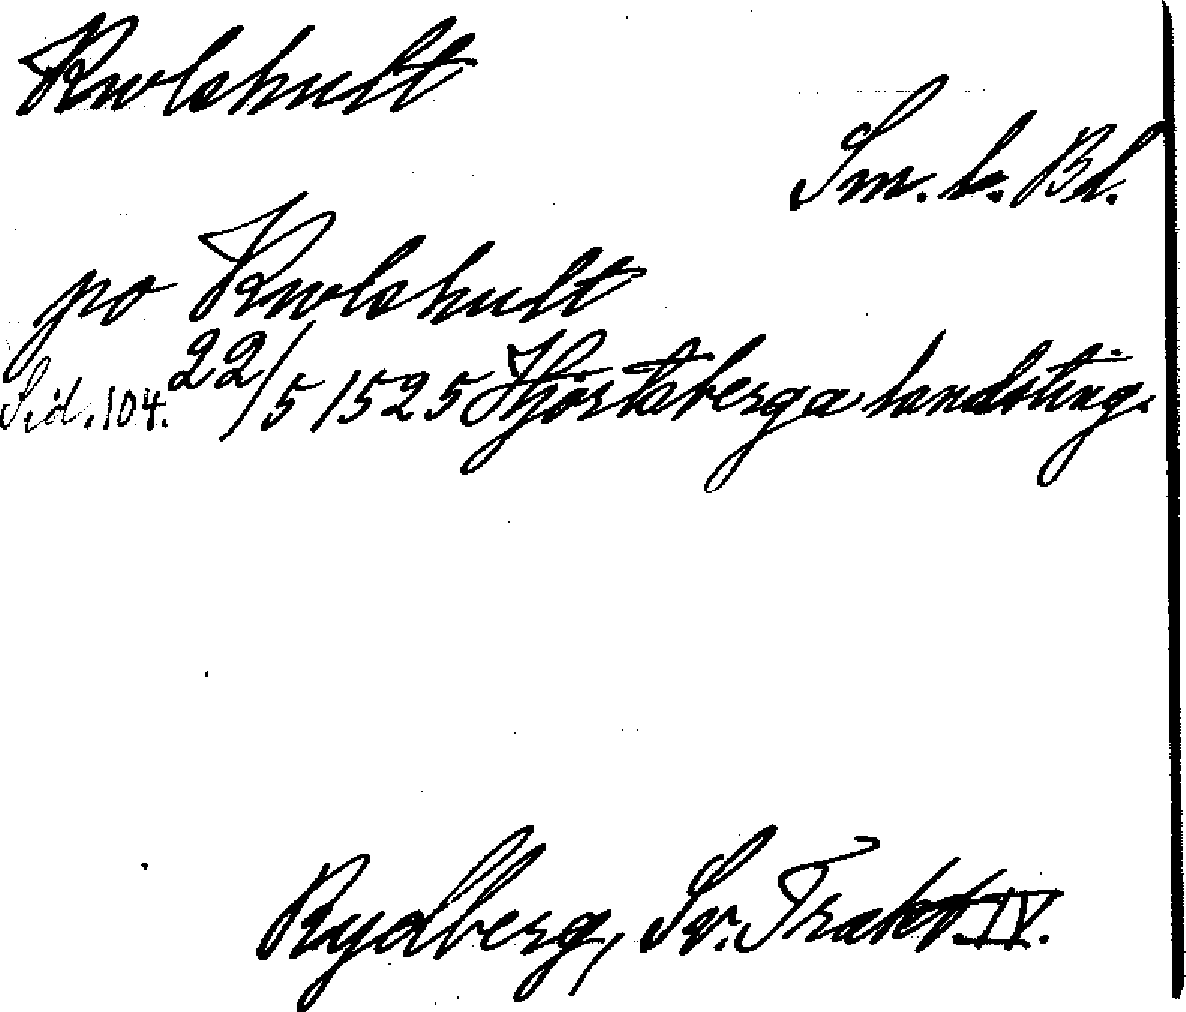 Knolshult
Sm. l. Bl.
po Knolshult
Sid. 104. 22/5 1525 Hjortsberga landsting.
Rydberg, Sv. Trakt. IV.